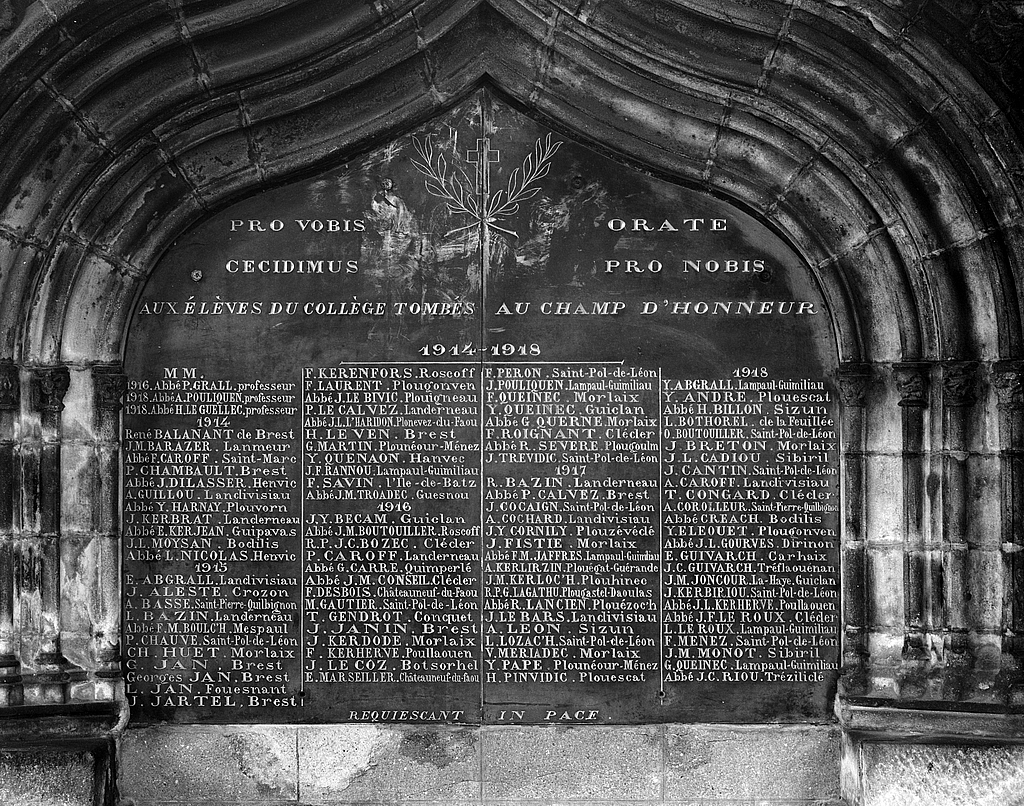 PRO VOBIS ORATE
CECIDIMUS PRO NOBIS
AUX ÉLÈVES DU COLLÈGE TOMBÉS AU CHAMP D'HONNEUR
1914-1918
MM.
1916. Abbé P. GRALL, professeur
1918. Abbé A. POULIQUEN, professeur
1918. Abbé H. LE GUELLEC, professeur
1914
René BALANANT de Brest
J.M. BARAZER. Lanmeur
Abbé F. CAROFF. Saint-Marc
P. CHAMBAULT. Brest
Abbé J. DILASSER. Henvic
A. GUILLOU. Landivisiau
Abbé Y. HARNAY. Plouvorn
J. KERBRAT. Landerneau
Abbé E. KERJEAN. Guipavas
J.L. MOYSAN. Bodilis
Abbé L. NICOLAS. Henvic
1915
E. ABGRALL. Landivisiau
J. ALESTE. Crozon
A. BASSE. Saint-Pierre-Quilbignon
L. BAZIN. Landerneau
Abbé F.M. BOULC'H. Mespaul
P. CHAUVE. Saint-Pol-de-Léon
CH. HUET. Morlaix
G. JAN. Brest
Georges JAN. Brest
L. JAN. Fouesnant
J. JARTEL. Brest
F. KERENFORS. Roscoff
F. LAURENT. Plougonven
Abbé J. LE BIVIC. Plouigneau
P. LE CALVEZ. Landerneau
Abbé J.L. L'HARIDON. Plonevez-du-Faou
H. LE VEN. Brest
G. MARTIN. Plounéour-Ménez
Y. QUENAON. Hanvec
J.F. RANNOU. Lampaul-Guimiliau
F. SAVIN. l'Ile-de-Batz
Abbé J.M. TROADEC. Guesnou
1916
J.Y. BECAM. Guiclan
Abbé J.M. BOUTOUILLER. Roscoff
R.P. J.C. BOZEC. Cléder
P. CAROFF. Landerneau
Abbé G. CARRE. Quimperlé
Abbé J.M. CONSEIL. Cléder
F. DESBOIS. Châteauneuf-du-Faou
M. GAUTIER. Saint-Pol-de-Léon
T. GENDROT. Conquet
J. JANIN. Brest
J. KERDODE. Morlaix
F. KERHERVE. Poullaouen
J. LE COZ. Botsorhel
E. MARSEILLER. Châteauneuf-du-faou
F. PERON. Saint-Pol-de-Léon
J. POULIQUEN. Lampaul-Guimiliau
F. QUEINEC. Morlaix
Y. QUEINEC. Guiclan
Abbé G. QUERNE. Morlaix
F. ROIGNANT. Cléder
Abbé R. SEVERE. Plougoulm
J. TREVIDIC. Saint-Pol-de-Léon
1917
R. BAZIN. Landerneau
Abbé P. CALVEZ. Brest
J. COCAIGN. Saint-Pol-de-Léon
A. COCHARD. Landivisiau
J.Y. CORNILY. Plouzévédé
J. FISTIE. Morlaix
Abbé F.M. JAFFRES. Lampaul-Guimiliau
A. KERLIRZIN. Plouégat-Guérande
J.M. KERLOC'H. Plouhinec
R.P.G. LAGATHU. Plougastel-Daoulas
Abbé R. LANCIEN. Plouézoc'h
J. LE BARS. Landivisiau
A. LEON. Sizun
L. LOZAC'H. Saint-Pol-de-Léon
V. MERIADEC. Morlaix
Y. PAPE. Plounéour-Ménez
H. PINVIDIC. Plouescat
1918
Y. ABGRALL. Lampaul-Guimiliau
Y. ANDRE. Plouescat
Abbé H. BILLON. Sizun
L. BOTHOREL. de la Feuillée
O. BOUTOUILLER. Saint-Pol-de-Léon
J. BRETON. Morlaix
J.L. CADIOU. Sibiril
J. CANTIN. Saint-Pol-de-Léon
A. CAROFF. Landivisiau
T. CONGARD. Cléder
A. COROLLEUR. Saint-Pierre-Quilbignon
Abbé CREACH. Bodilis
Y. ELEOUET. Plougonven
Abbé J.L. GOURVES. Dirinon
E. GUIVARCH. Carhaix
J.C. GUIVARCH. Tréflaouenan
J.M. JONCOUR. La-Haye. Guiclan
J. KERBIRIOU. Saint-Pol-de-Léon
Abbé J.L. KERHERVE. Poullaouen
Abbé J.F. LE ROUX. Cléder
L. LE ROUX. Lampaul-Guimiliau
F. MENEZ. Saint-Pol-de-Léon
J.M. MONOT. Sibiril
G. QUEINEC. Lampaul-Guimiliau
Abbé J.C. RIOU. Trézilidé
REQUIESCANT IN PACE.